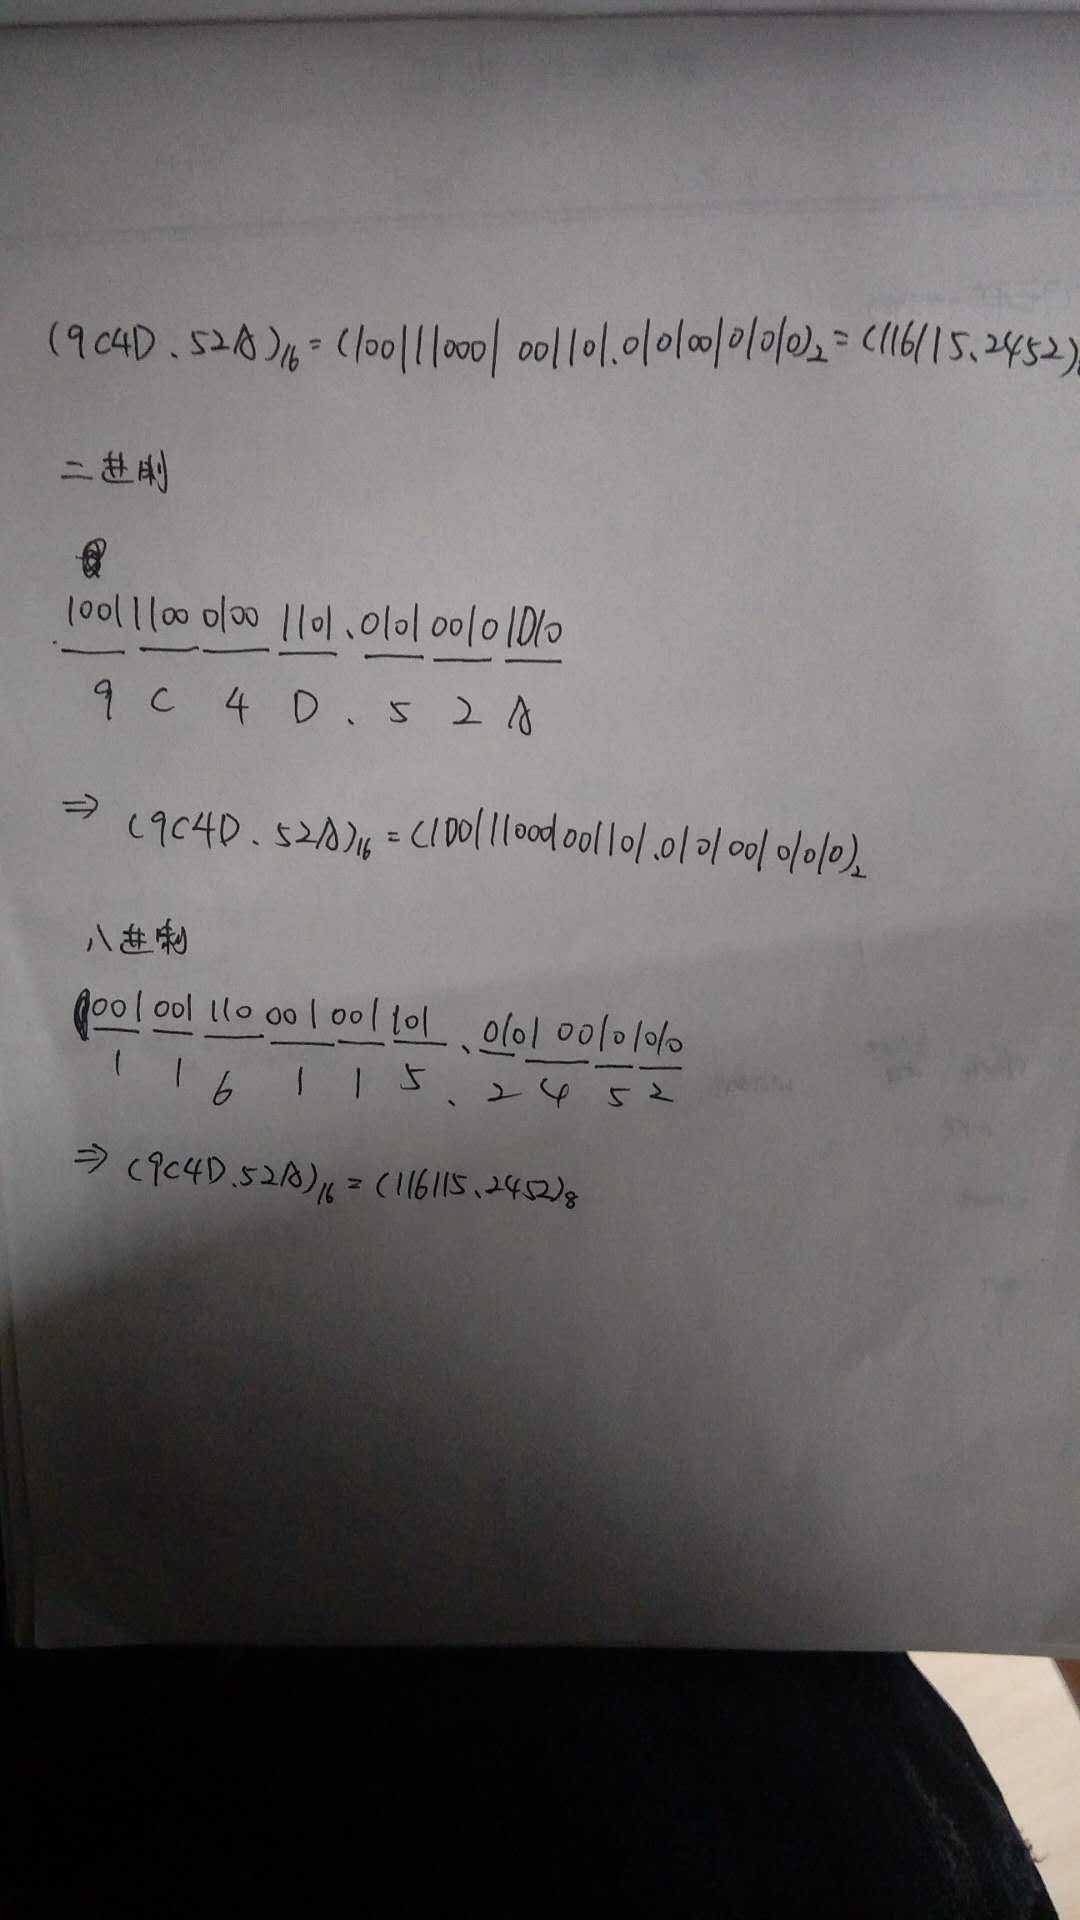 (9C4D.52A)₁₆=(1001110001001101.010100101010)₂=(116115.2452)
二进制
1001 1100 0100 1101.0101 0010 1010
9 C 4 D . 5 2 A
⇒ (9C4D.52A)₁₆=(1001110001001101.010100101010)₂
八进制
001 001 110 001 001 101.010 100 101 010
1 1 6 1 1 5 . 2 4 5 2
⇒ (9C4D.52A)₁₆=(116115.2452)₈